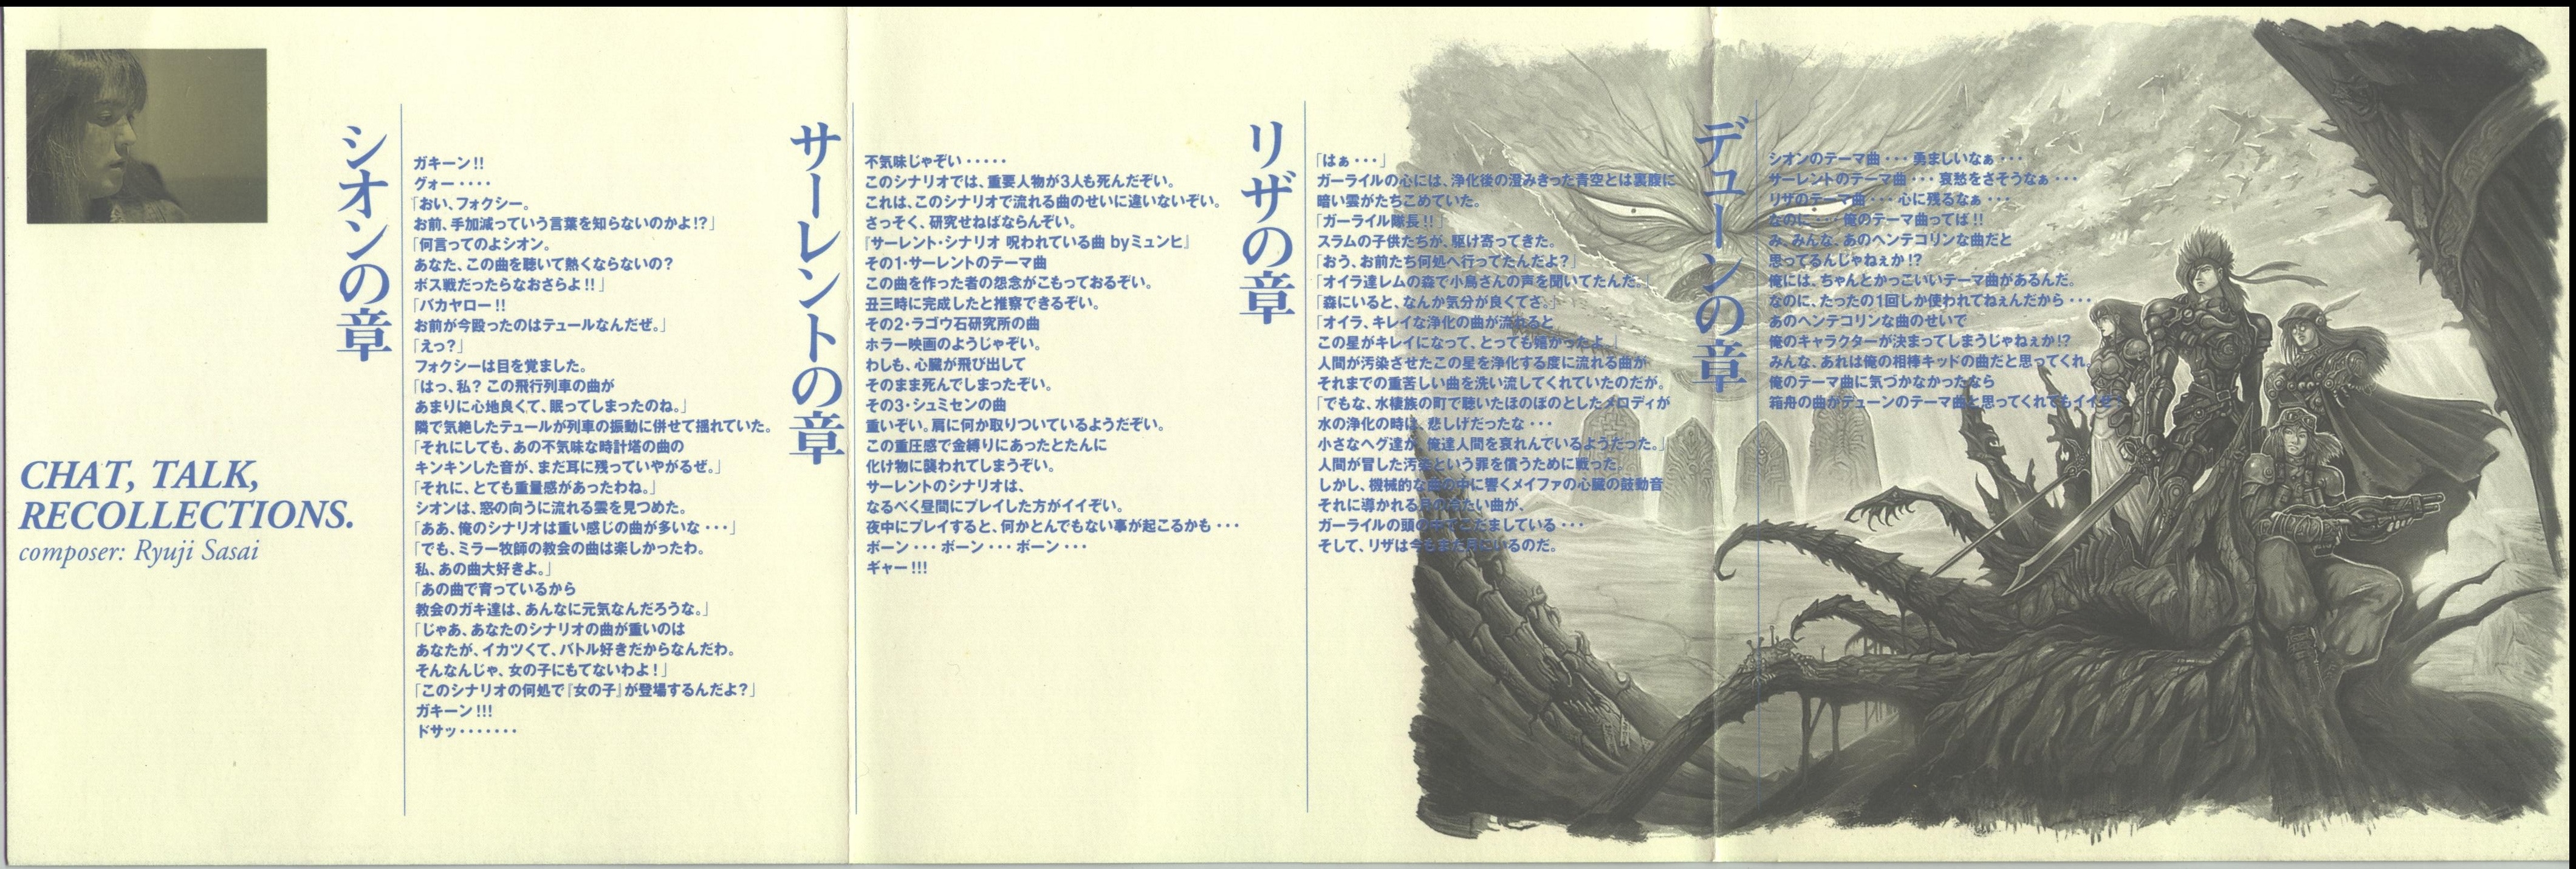 CHAT, TALK,
RECOLLECTIONS.
composer: Ryuji Sasai
シオンの章
ガキーン!!
グォー････
｢おい､フォクシー。
お前､手加減っていう言葉を知らないのかよ!?｣
｢何言ってのよシオン。
あなた､この曲を聴いて熱くならないの?
ボス戦だったらなおさらよ!!｣
｢バカヤロー!!
お前が今殴ったのはテュールなんだぜ。｣
｢えっ?｣
フォクシーは目を覚ました。
｢はっ､私? この飛行列車の曲が
あまりに心地良くて､眠ってしまったのね。｣
隣で気絶したテュールが列車の振動に併せて揺れていた。
｢それにしても､あの不気味な時計塔の曲の
キンキンした音が､まだ耳に残っていやがるぜ。｣
｢それに､とても重量感があったわね。｣
シオンは､窓の向うに流れる雲を見つめた。
｢ああ､俺のシナリオは重い感じの曲が多いな･･･｣
｢でも､ミラー牧師の教会の曲は楽しかったわ。
私､あの曲大好きよ。｣
｢あの曲で育っているから
教会のガキ達は､あんなに元気なんだろうな。｣
｢じゃあ､あなたのシナリオの曲が重いのは
あなたが､イカツくて､バトル好きだからなんだわ。
そんなんじゃ､女の子にもてないわよ!｣
｢このシナリオの何処で『女の子』が登場するんだよ?｣
ガキーン!!!
ドサッ･･･････
サーレントの章
不気味じゃぞい･････
このシナリオでは､重要人物が3人も死んだぞい。
これは､このシナリオで流れる曲のせいに違いないぞい。
さっそく､研究せねばならんぞい。
『サーレント･シナリオ 呪われている曲 byミュンヒ』
その1･サーレントのテーマ曲
この曲を作った者の怨念がこもっておるぞい。
丑三時に完成したと推察できるぞい。
その2･ラゴウ石研究所の曲
ホラー映画のようじゃぞい。
わしも､心臓が飛び出して
そのまま死んでしまったぞい。
その3･シュミセンの曲
重いぞい。肩に何か取りついているようだぞい。
この重圧感で金縛りにあったとたんに
化け物に襲われてしまうぞい。
サーレントのシナリオは､
なるべく昼間にプレイした方がイイぞい。
夜中にプレイすると､何かとんでもない事が起こるかも･･･
ボーン･･･ボーン･･･ボーン･･･
ギャー!!!
リザの章
｢はぁ･･･｣
ガーライルの心には､浄化後の澄みきった青空とは裏腹に
暗い雲がたちこめていた。
｢ガーライル隊長!!｣
スラムの子供たちが､駆け寄ってきた。
｢おう､お前たち何処へ行ってたんだよ?｣
｢オイラ達レムの森で小鳥さんの声を聞いてたんだ。｣
｢森にいると､なんか気分が良くてさ。｣
｢オイラ､キレイな浄化の曲が流れると
この星がキレイになって､とっても嬉かったよ。｣
人間が汚染させたこの星を浄化する度に流れる曲が
それまでの重苦しい曲を洗い流してくれていたのだが。
｢でもな､水棲族の町で聴いたほのぼのとしたメロディが
水の浄化の時は､悲しげだったな･･･
小さなヘグ達が､俺達人間を哀れんでいるようだった。｣
人間が冒した汚染という罪を償うために戦った。
しかし､機械的な曲の中に響くメイファの心臓の鼓動音
それに導かれる月の冷たい曲が､
ガーライルの頭の中でこだましている･･･
そして､リザは今もまだ月にいるのだ。
デューンの章
シオンのテーマ曲･･･勇ましいなぁ･･･
サーレントのテーマ曲･･･哀愁をさそうなぁ･･･
リザのテーマ曲･･･心に残るなぁ･･･
なのに･･･俺のテーマ曲ってば!!
み､みんな､あのヘンテコリンな曲だと
思ってるんじゃねぇか!?
俺には､ちゃんとかっこいいテーマ曲があるんだ。
なのに､たったの1回しか使われてねぇんだから･･･
あのヘンテコリンな曲のせいで
俺のキャラクターが決まってしまうじゃねぇか!?
みんな､あれは俺の相棒キッドの曲だと思ってくれ。
俺のテーマ曲に気づかなかったなら
箱舟の曲がデューンのテーマ曲と思ってくれてもイイぞ